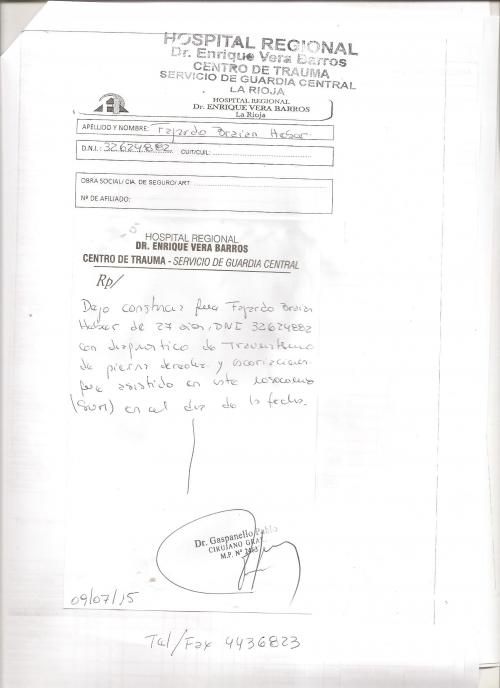 HOSPITAL REGIONAL
Dr. Enrique Vera Barros
CENTRO DE TRAUMA
SERVICIO DE GUARDIA CENTRAL
LA RIOJA
HOSPITAL REGIONAL
DR. ENRIQUE VERA BARROS
La Rioja
APELLIDO Y NOMBRE: Fajardo Braian
D.N.I.: 32624882 CUIT/CUIL:
OBRA SOCIAL/ CIA. DE SEGURO/ ART
Nº DE AFILIADO:
HOSPITAL REGIONAL
DR. ENRIQUE VERA BARROS
CENTRO DE TRAUMA - SERVICIO DE GUARDIA CENTRAL
Rp/
Dejo constancia que Fajardo Braian
de 27 años, DNI 32624882
con diagnostico de Traumatismo
de pierna derecha y escoriaciones
fue asistido en este nosocomio
en el dia de la fecha.
Dr. Gaspanello Pablo
CIRUJANO GRAL.
M.P. Nº
09/07/15
Tel/Fax 4436823